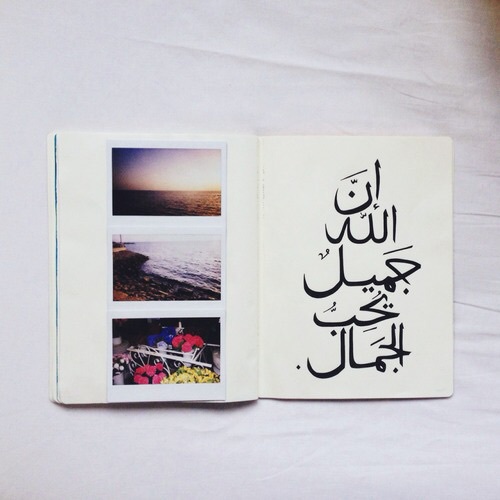 إنَّ
الله
جَميلٌ
يُحِبُّ
الجَمال.